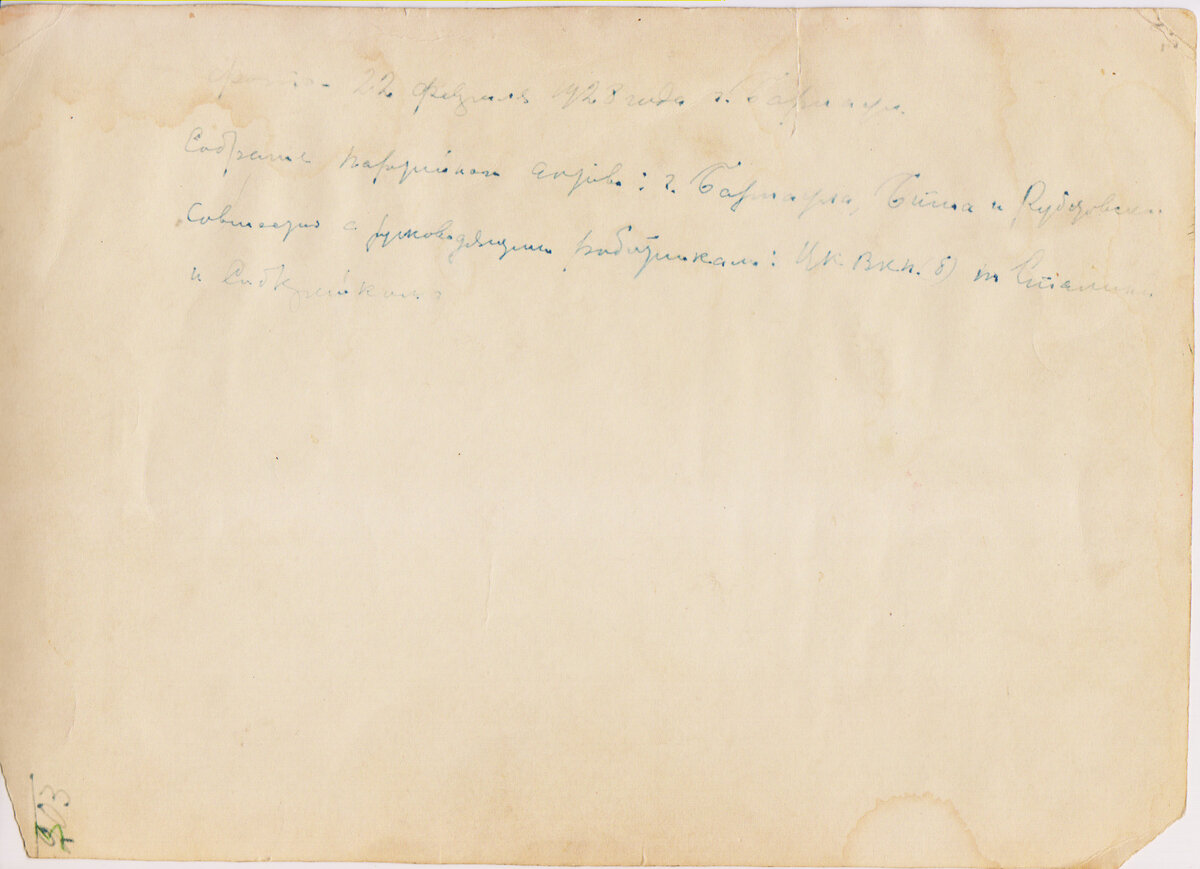 фото 22 февраля 1928 года г. Барнаул
Собрание партийного актива: г. Барнаула, Бийска и Рубцовска
совместно с руководящими работниками: ЦК ВКП(б) т. Сталин
и Сибкрайкома